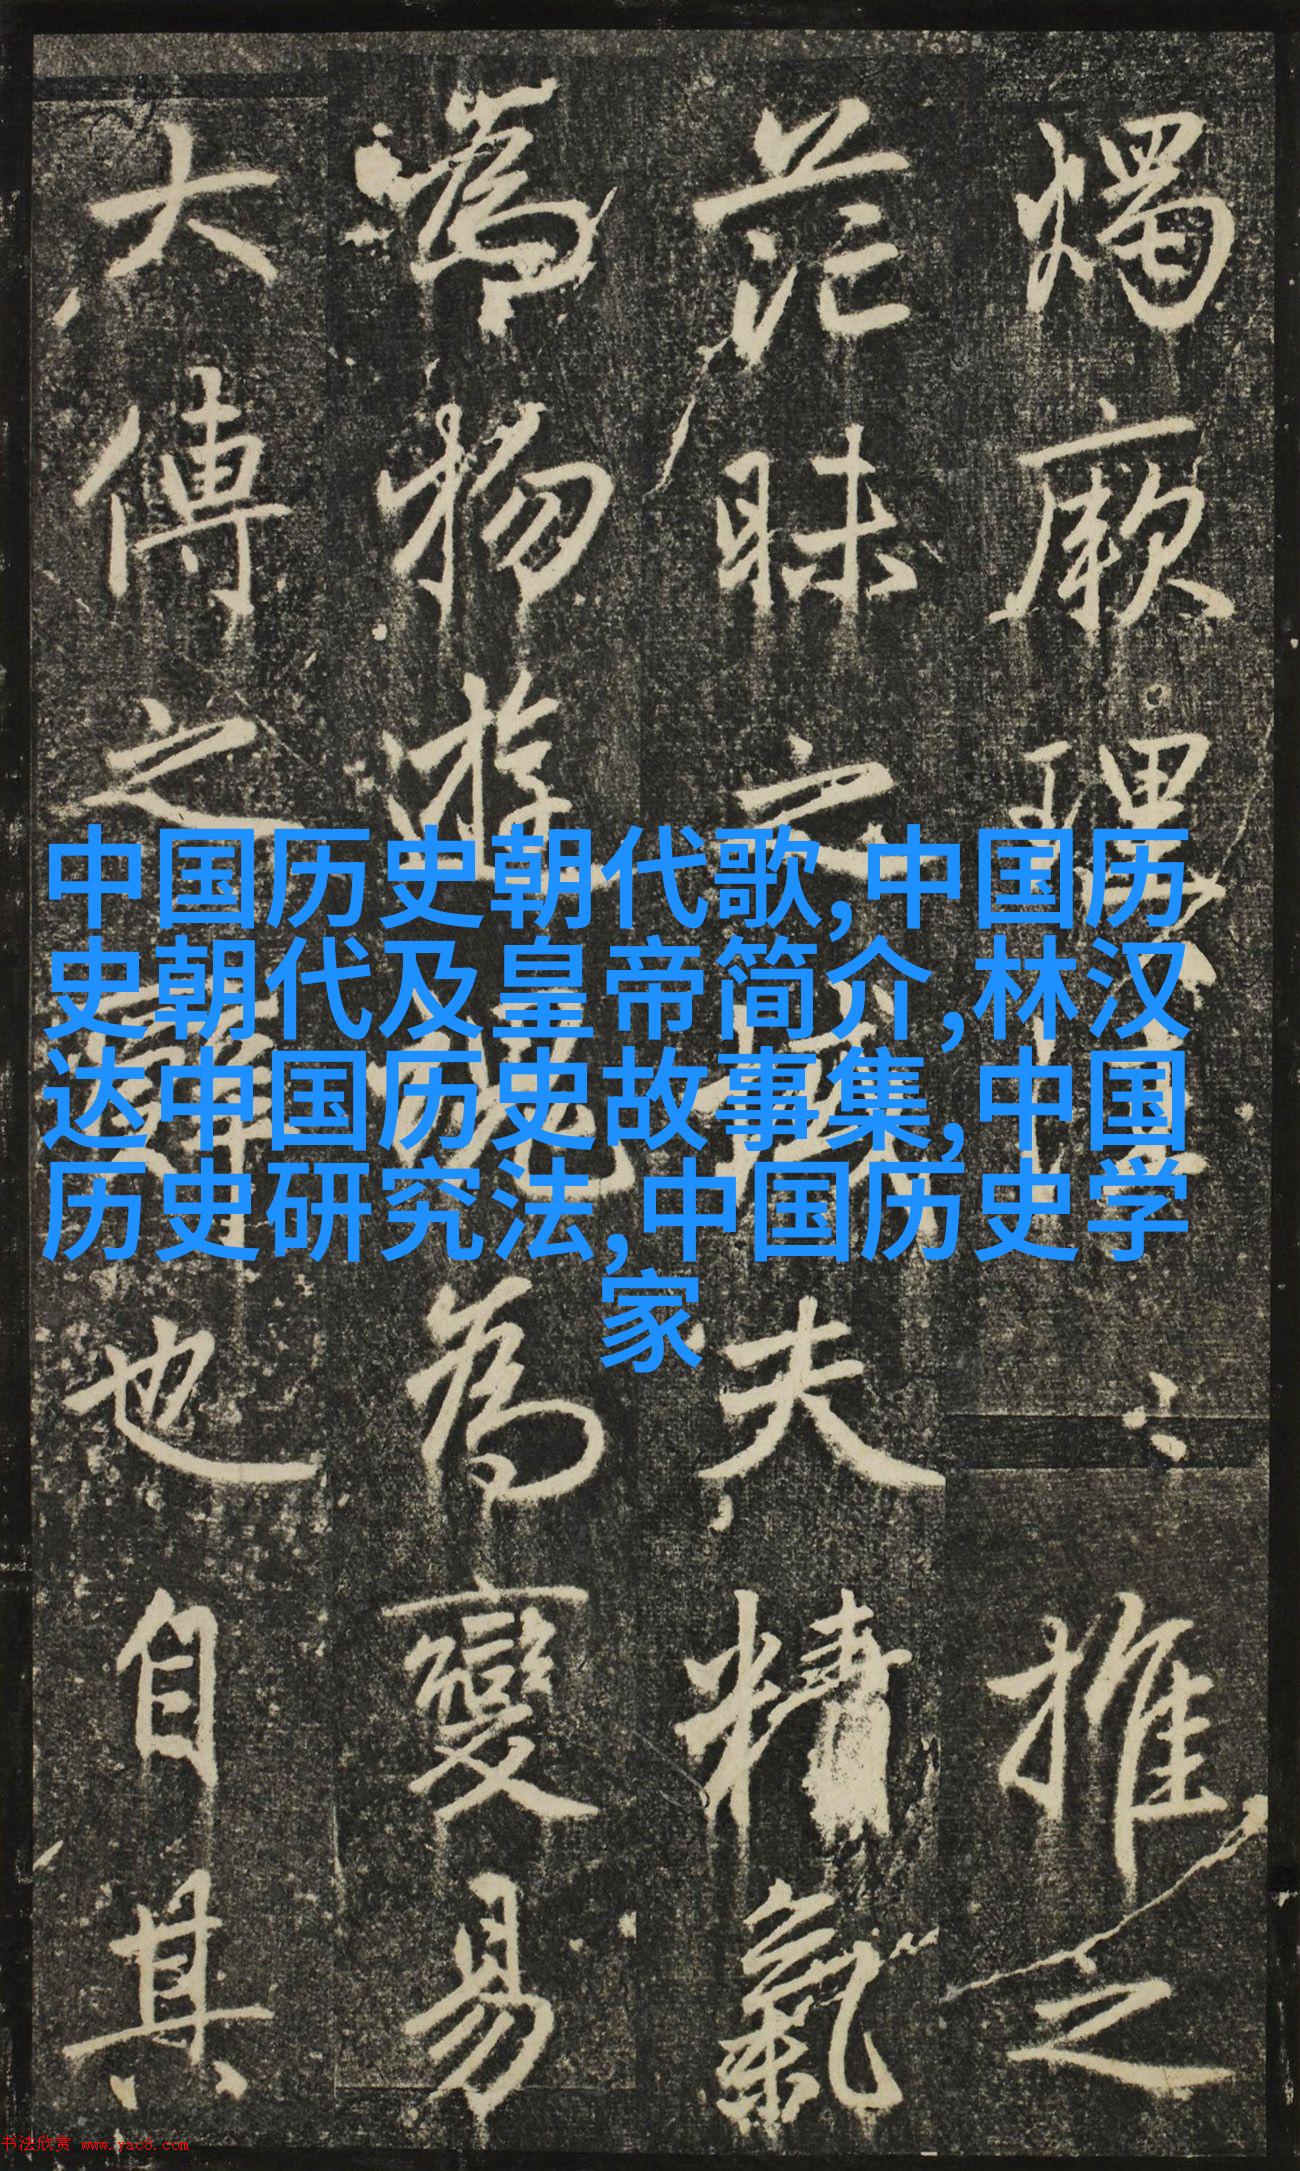 燭厥理推之
茫昧之夫精氣
為物遊魂為變易
大傳之辭也自其
中国历史朝代歌,中国历
史朝代及皇帝简介,林汉
达中国历史故事集,中国
历史研究法,中国历史学
家
书法欣赏 www.yac8.com